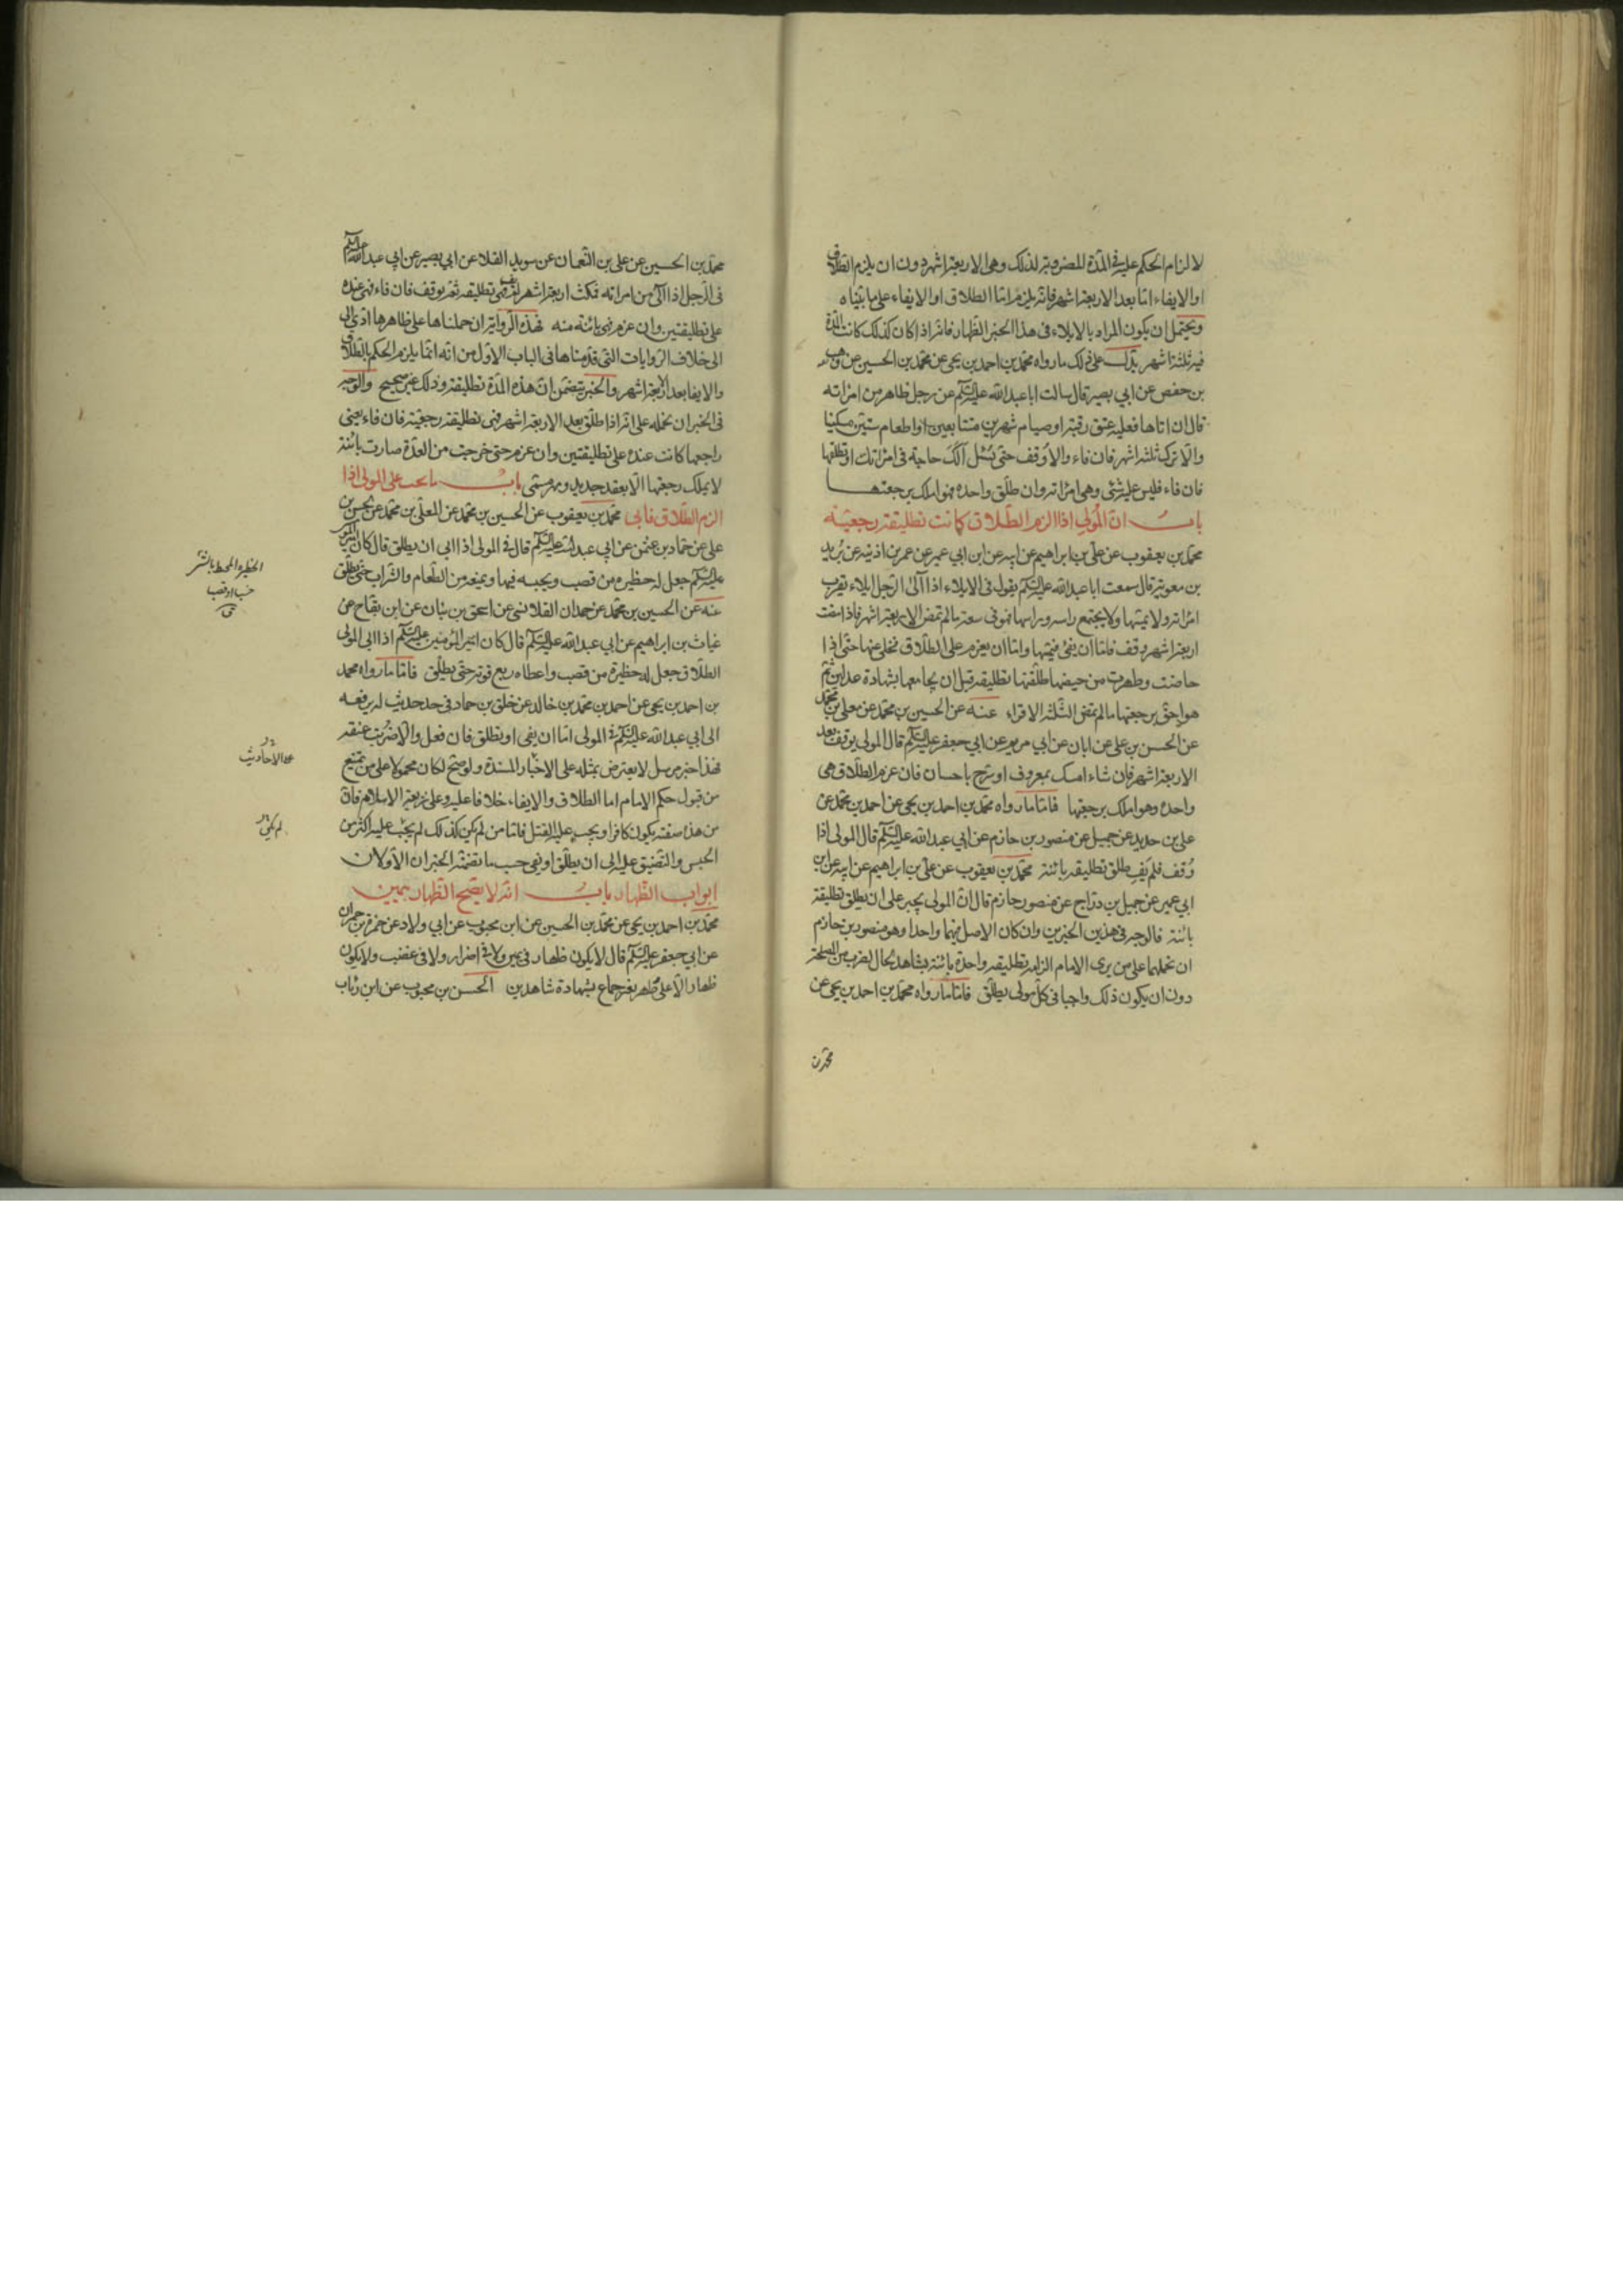 لالزام الحكم عليه فى المدة المضروبة لذلك وهى الاربعة اشهر دون ان يلزم الطلاق
او الايفاء انما بعد الاربعة اشهر فانه يلزم امّا الطلاق او الايفاء على ما بيّناه
ويحتمل ان يكون المراد بالايلاء فى هذا الخبر الظهار فانه اذا كان كذلك كانت المدة
فيه ثلثة اشهر يدل على ذلك ما رواه محمد بن احمد بن يحيى عن محمد بن الحسين عن وهيب
بن حفص عن ابي بصير قال سالت ابا عبدالله عليه السلم عن رجل ظاهر من امراته
قال ان اتاها فعليه عتق رقبة او صيام شهرين متتابعين او اطعام ستين مسكينا
والّا ترك ثلثة اشهر فان فاء والا اوقف حتى يُسئل ألك حاجة فى امراتك او تطلقها
فان فاء فليس عليه شئ وهى امراته وان طلّق واحدة فهو املك برجعتها
باب ان المُولي اذا الزم الطلاق كانت تطليقة رجعيّة
محمد بن يعقوب عن علي بن ابراهيم عن ابيه عن ابن ابي عمير عن عمر بن اذينه عن بُريد
بن معوية قال سمعت ابا عبدالله عليه السلم يقول فى الايلاء اذا آلى الرجل ان لا يقرب
امراته ولا يمسّها ولا يجتمع راسه وراسها فهو فى سعة ما لم تمض الاربعة اشهر فاذا مضت
اربعة اشهر وقف فامّا ان يفئ فيمسّها وامّا ان يعزم على الطلاق فيخلي عنها حتى اذا
حاضت وطهرت من حيضها طلّقها تطليقة قبل ان يجامعها بشهادة عدلين ثم
هو احقّ برجعتها ما لم تمض الثلثة الاقراء عنه عن الحسين بن محمد عن معلى بن محمد
عن الحسن بن على عن ابان عن ابي مريم عن ابي جعفر عليه السلم قال المولى يوقف بعد
الاربعة اشهر فان شاء امساك بمعروف او تسريح باحسان فان عزم الطلاق فهى
واحدة وهو املك برجعتها فامّا ما رواه محمد بن احمد بن يحيى عن احمد بن محمد عن
علي بن حديد عن جميل عن منصور بن حازم عن ابي عبدالله عليه السلم قال المولى اذا
وُقف فلم يَفِ طلق تطليقة بائنة محمد بن يعقوب عن على بن ابراهيم عن ابيه عن ابن
ابي عمير عن جميل بن درّاج عن منصور بن حازم قال ان المولى يجبر على ان يطلق تطليقة
بائنة فالوجه فى هذين الخبرين وان كان الاصل فيهما واحدا وهو منصور بن حازم
ان نحملهما على من يرى الامام الزامه تطليقة واحدة بائنة بشاهد الحال لضرب من المصلحة
دون ان يكون ذلك واجبا فى كلّ مولى يطلّق فامّا ما رواه محمد بن احمد بن يحيى عن
محمد بن
محمد بن الحسين عن على بن النعمان عن سويد القلا عن ابي بصير عن ابي عبدالله عليه السلم
فى الرجل اذا آلى من امراته فمكث اربعة اشهر فلم يف فهى تطليقة ثم يوقف فان فاء فهى عنده
على تطليقتين وان عزم فهى بائنة منه فهذه الرواية ان حملناها على ظاهرها ادّى الى
الى خلاف الروايات التى قدّمناها فى الباب الاوّل من انه انما يلزم الحكم بالطلاق
والايفا بعد الاربعة اشهر والخبر يتضمّن ان هذه المدة تطليقة وذلك غير صحيح والوجه
فى الخبر ان نحمله على انه اذا طلّق بعد الاربعة اشهر فهى تطليقة رجعية فان فاء يعنى
راجعها كانت عنده على تطليقتين وان عزم حتى خرجت من العدّة صارت بائنة
لا يملك رجعتها الا بعقد جديد ومهر مسمّى باب ما يجب على المولى اذا
الزم الطلاق فابى محمد بن يعقوب عن الحسين بن محمد عن المعلّى بن محمد عن الحسن بن
على عن حماد بن عثمن عن ابي عبدالله عليه السلم قال فى المولى اذا ابى ان يطلق قال كان امير المؤمنين
عليه السلم جعل له حظيره من قصب ويحبسه فيها ويمنعه من الطعام والشراب حتى يطلق
عنه عن الحسين بن محمد عن حمدان القلانسى عن اسحق بن بنان عن ابن بقاح عن
غياث بن ابراهيم عن ابي عبدالله عليه السلم قال كان امير المؤمنين عليه السلم اذا ابى المولى
الطلاق جعل له حظيرة من قصب واعطاه ربع قوته حتى يطلّق فامّا ما رواه محمد
بن احمد بن يحيى عن احمد بن محمد بن خالد عن خلف بن حماد فى حد حديث له يرفعه
الى ابي عبدالله عليه السلم فى المولى امّا ان يفى او يطلق فان فعل والّا ضُربت عنقه
فهذا خبر مرسل لا يعترض بمثله على الاخبار المسندة ولو صحّ لكان محمولا على من يمتنع
من قبول حكم الامام اما الطلاق والايفاء خلافا عليه وعلى شريعة الاسلام فانّ
من هذه صفته يكون كافرا ويجب عليه القتل فامّا من لم يكن كذلك لم يجب عليه اكثر من
الحبس والتضييق عليه الى ان يطلّق او يفى حسب ما تضمّنه الخبران الاوّلان
ابواب الظهار باب انه لا يصحّ الظهار بيمين
محمد بن احمد بن يحيى عن محمد بن الحسين عن ابن محبوب عن ابي ولاد عن حمزة بن حمران
عن ابي جعفر عليه السلم قال لا يكون ظهار فى يمين ولا فى اضرار ولا فى غضب ولا يكون
ظهار الّا على طهر بغير جماع بشهادة شاهدين الحسن بن محبوب عن ابن رئاب
خشب او قصب
الاحاديث
لم يكن